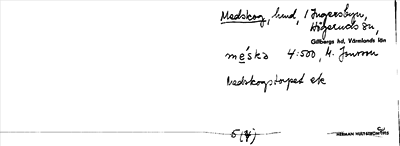 Medskog, hmd, i Ingersbyn,
Högeruds sn,
Gillbergs hd, Värmlands län
meska 4:500, H. Jonsson
Medskogstorpet ek
5 (4)
HERMAN HULTSTRÖM 1915